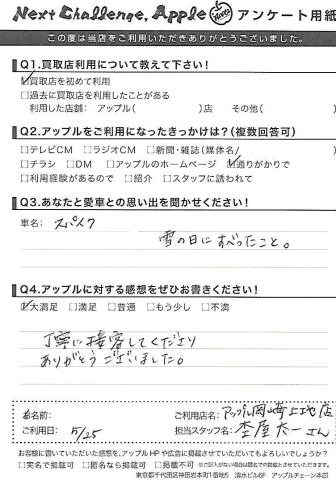 Next Challenge, Apple アンケート用紙
この度は当店をご利用いただきありがとうございました。
Q1.買取店利用について教えて下さい!
☑買取店を初めて利用
□過去に買取店を利用したことがある
利用した店舗: アップル( )店 その他( )
Q2.アップルをご利用になったきっかけは?(複数回答可)
□テレビCM □ラジオCM □新聞・雑誌(媒体名/ )
□チラシ □DM □アップルのホームページ ☑通りがかりで
□利用経験があるので □紹介 □スタッフに誘われて
Q3.あなたと愛車との思い出を聞かせください!
車名: スパイク
雪の日にすべったこと。
Q4.アップルに対する感想をぜひお書きください!
☑大満足 □満足 □普通 □もう少し □不満
丁寧に接客してくださり
ありがとうございました。
お名前: ご利用店名: アップル岡崎上地店
ご利用日: 5/25 担当スタッフ名: 杢屋太一さん
お客様に書いていただいた感想を、アップルHPや広告に掲載させていただいてもよろしいでしょうか?
□実名で掲載可 □匿名なら掲載可 □掲載不可 ※ご記入がない場合は匿名での掲載とさせていただきます。
東京都千代田区神田岩本町1番地6 清水ビル6F アップルチェーン本部